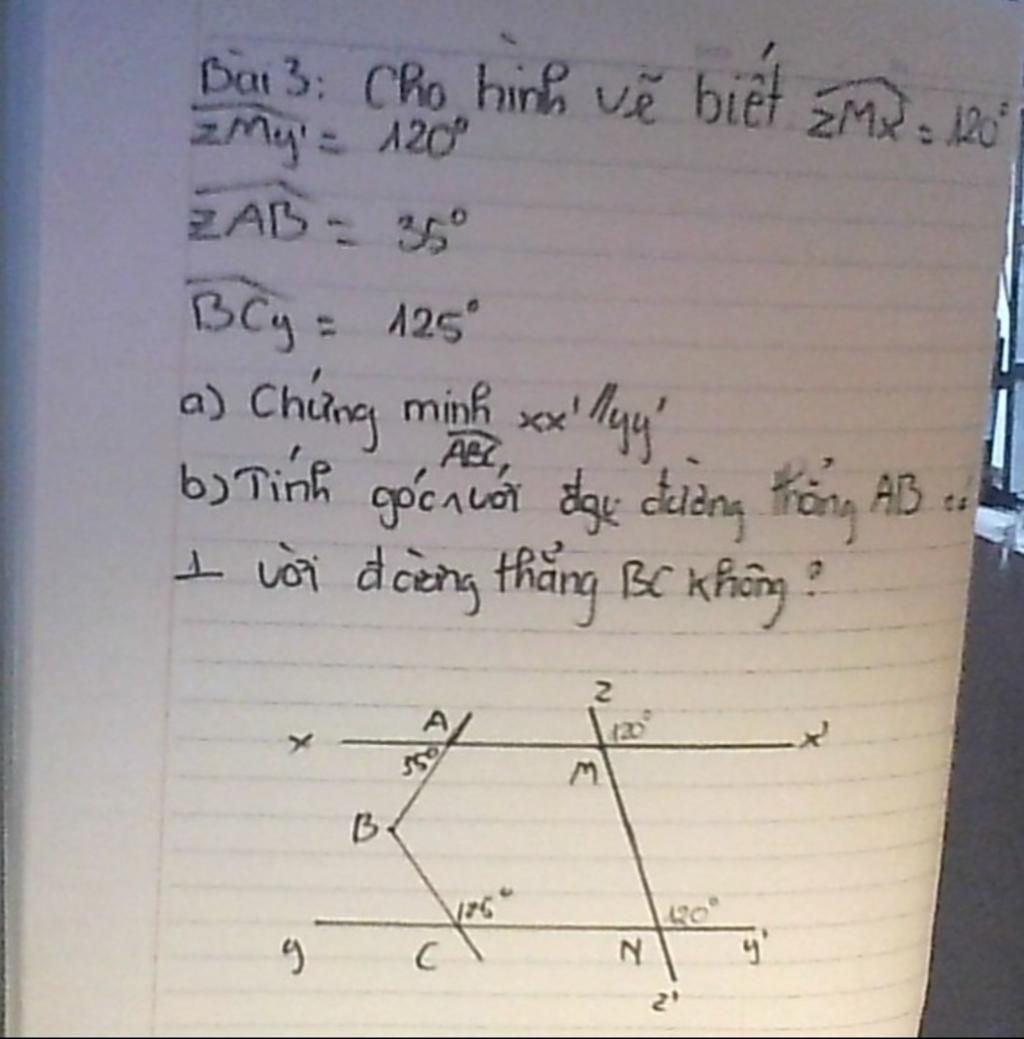 Bài 3: Cho hình vẽ biết zMx = 120°
zMy' = 120°
zAB = 35°
BCy = 125°
a) Chứng minh xx' // yy'
ABC,
b) Tính góc ∧ với đường thẳng AB
⊥ với đường thẳng BC không?
z
A 120°
x x'
35° M
B
125° 120°
y C N y'
z'